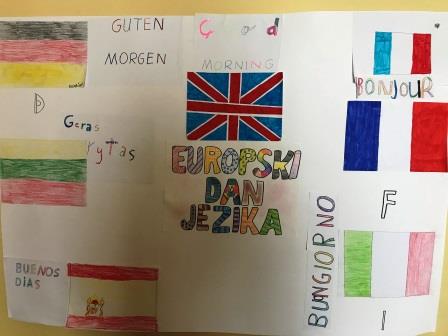 GUTEN
MORGEN
Good
MORNING
BONJOUR
D
Geras
rytas
EUROPSKI
DAN
JEZIKA
F
BUNGIORNO
I
BUENOS
DIAS